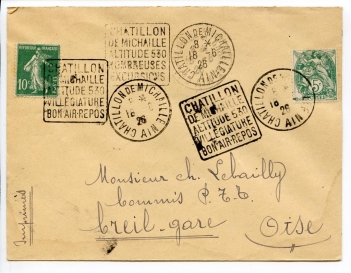 CHATILLON
DE MICHAILLE
ALTITUDE 530
NOMBREUSES
EXCURSIONS
CHATILLON DE MICHAILLE AIN
18 -8
26
10c
5
CHATILLON
DE MICHAILLE
ALTITUDE 530
VILLEGIATURE
BON AIR-REPOS
CHATILLON DE MICHAILLE AIN
18
26
CHATILLON
DE MICHAILLE
ALTITUDE 530
VILLEGIATURE
BON AIR-REPOS
CHATILLON DE MICHAILLE
18
26
AIN
Monsieur Ch. Lebailly
Commis P.T.T
Creil-gare Oise
Imprimés